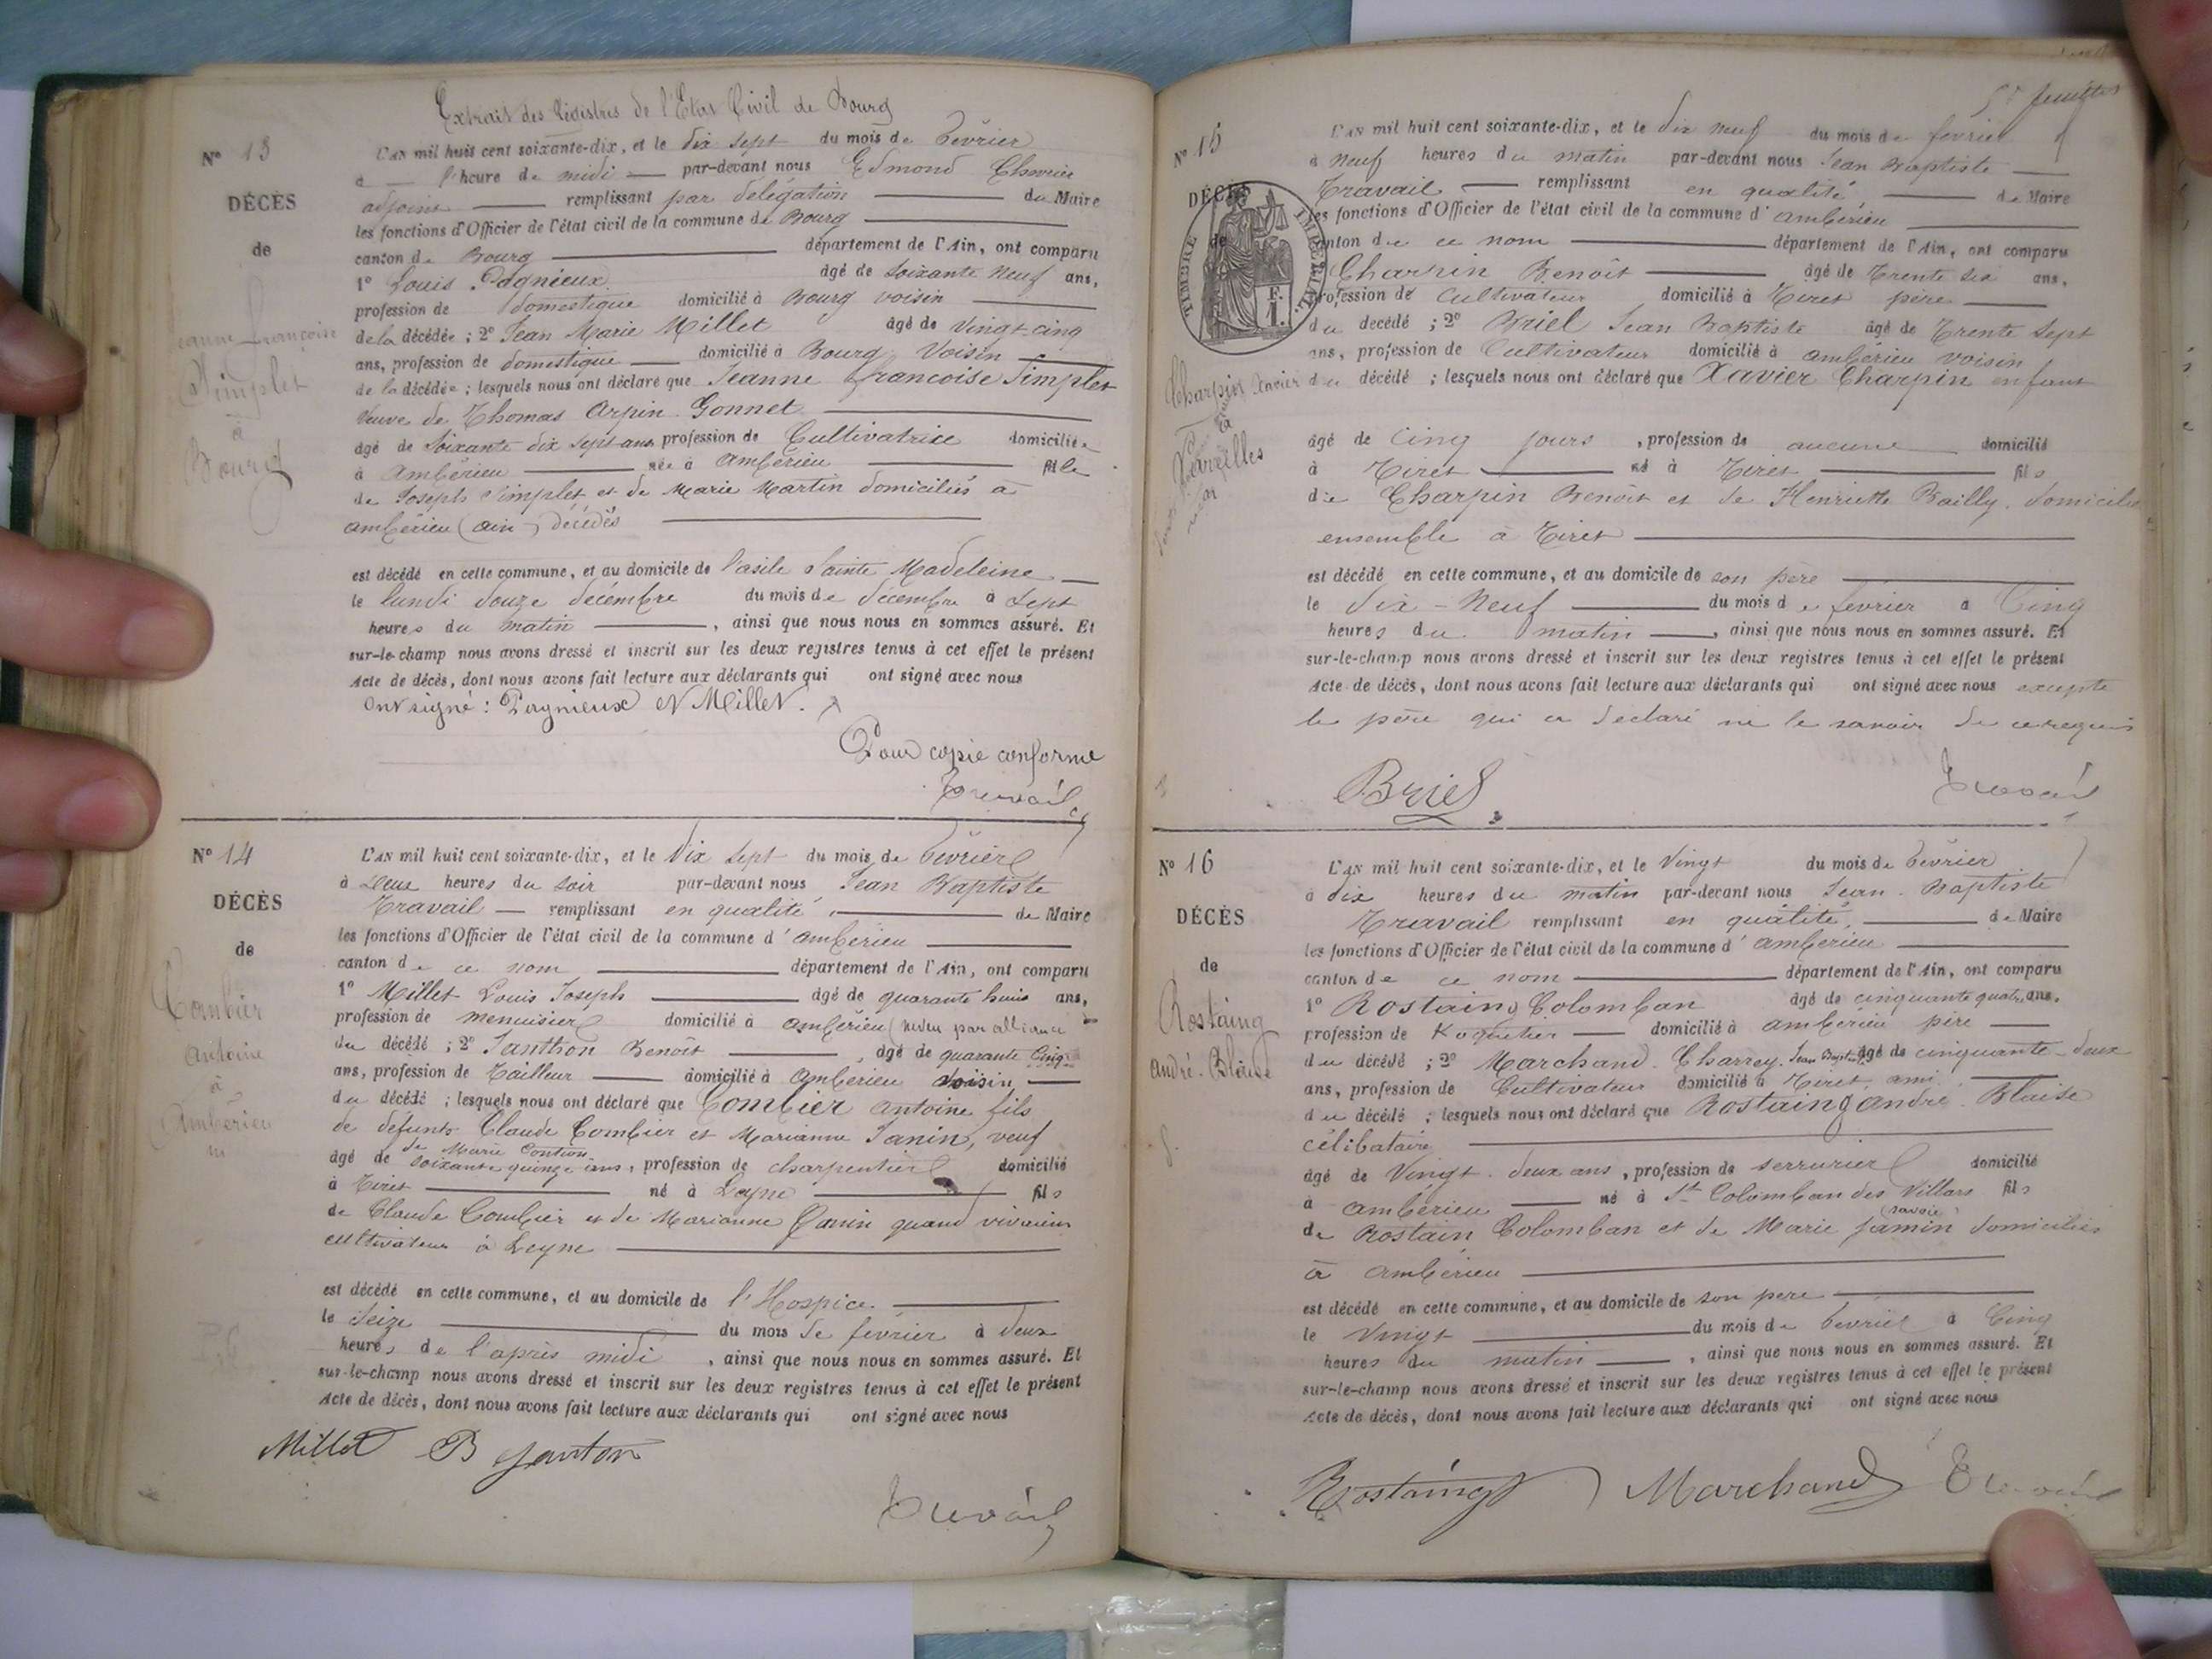 Extrait des Registres de l'Etat Civil de Bourg
N° 13
L'AN mil huit cent soixante-dix, et le dix sept du mois de février
à l'heure de midi par-devant nous Edmond
adjoint remplissant par délégation du Maire
DÉCÈS
les fonctions d'Officier de l'état civil de la commune de Bourg
de
canton de Bourg département de l'Ain, ont comparu
1° Louis Pagnieux âgé de soixante neuf ans,
profession de domestique domicilié à Bourg voisin
Jeanne Françoise
de la décédée ; 2° Jean Marie Millet âgé de vingt-cinq
ans, profession de domestique domicilié à Bourg, voisin
Simplet
de la décédée ; lesquels nous ont déclaré que Jeanne Francoise Simplet
à
veuve de Thomas Arpin Gonnet
Bourg
âgé de soixante dix sept ans profession de Cultivatrice domiciliée
à Ambérieu née à Ambérieu fille
de Joseph Simplet et de Marie Martin domiciliés à
Ambérieu (ain) décédés
est décédé en cette commune, et au domicile de l'asile Sainte Madeleine
le lundi douze décembre du mois de décembre à sept
heures du matin , ainsi que nous nous en sommes assuré. Et
sur-le-champ nous avons dressé et inscrit sur les deux registres tenus à cet effet le présent
Acte de décès, dont nous avons fait lecture aux déclarants qui ont signé avec nous
Ont signé : Pagnieux et Millet.
Pour copie conforme
Travail
N° 14
L'AN mil huit cent soixante-dix, et le Dix sept du mois de février
à deux heures du soir par-devant nous Jean Baptiste
DÉCÈS
Travail remplissant en qualité de Maire
les fonctions d'Officier de l'état civil de la commune d'Ambérieu
de
canton de ce nom département de l'Ain, ont comparu
1° Millet Louis Joseph âgé de quarante huit ans,
Combier
profession de menuisier domicilié à Ambérieu (neveu par alliance
Antoine
du décédé ; 2° Janthon Benoît , âgé de quarante cinq
à
ans, profession de Tailleur domicilié à Ambérieu voisin
Ambérieu
du décédé ; lesquels nous ont déclaré que Combier Antoine fils
de défunts Claude Combier et Marianne Janin, veuf
de Marie Contion
âgé de soixante quinze ans, profession de charpentier domicilié
à Tiret né à Leyne fils
de Claude Combier et de Marianne Janin quand vivaient
cultivateur à Leyne
est décédé en cette commune, et au domicile de l'Hospice
le Seize du mois de février à deux
heures de l'après midi , ainsi que nous nous en sommes assuré. Et
sur-le-champ nous avons dressé et inscrit sur les deux registres tenus à cet effet le présent
Acte de décès, dont nous avons fait lecture aux déclarants qui ont signé avec nous
Millet B Janton
Travail
N° 15
L'AN mil huit cent soixante-dix, et le dix neuf du mois de février
à neuf heures du matin par-devant nous Jean Baptiste
DÉCÈS
Travail remplissant en qualité de Maire
les fonctions d'Officier de l'état civil de la commune d'Ambérieu
de
canton de ce nom département de l'Ain, ont comparu
TIMBRE IMPERIAL
F. 1.
Charpin Benoît âgé de Trente six ans,
profession de cultivateur domicilié à Tiret père
du décédé ; 2° Briel Jean Baptiste âgé de Trente sept
ans, profession de Cultivateur domicilié à Ambérieu voisin
Charpin Xavier
du décédé ; lesquels nous ont déclaré que Xavier Charpin enfant
âgé de cinq jours , profession de aucune domicilié
à Tiret né à Tiret fils
de Charpin Benoît et de Henriette Bailly, domiciliés
ensemble à Tiret
est décédé en cette commune, et au domicile de son père
le Dix-Neuf du mois de février à Cinq
heures du matin , ainsi que nous nous en sommes assuré. Et
sur-le-champ nous avons dressé et inscrit sur les deux registres tenus à cet effet le présent
Acte de décès, dont nous avons fait lecture aux déclarants qui ont signé avec nous excepté
le père qui a déclaré ne le savoir de ce requis
Briel
Travail
N° 16
L'AN mil huit cent soixante-dix, et le Vingt du mois de février
à dix heures du matin par-devant nous Jean-Baptiste
DÉCÈS
Travail remplissant en qualité de Maire
les fonctions d'Officier de l'état civil de la commune d'Ambérieu
de
canton de ce nom département de l'Ain, ont comparu
1° Rostaing Colomban âgé de cinquante quatre ans,
Rostaing
profession de Koquetier domicilié à Ambérieu père
André-Blaise
du décédé ; 2° Marchand Charrey Jean Baptiste âgé de cinquante-deux
ans, profession de Cultivateur domicilié à Tiret, ami
du décédé ; lesquels nous ont déclaré que Rostaing André Blaise
célibataire
âgé de Vingt-deux ans , profession de serrurier domicilié
à Ambérieu né à St Colomban des Villars fils
(savoie)
de Rostain Colomban et de Marie Jamin domiciliés
à Ambérieu
est décédé en cette commune, et au domicile de son père
le Vingt du mois de février à Cinq
heures du matin , ainsi que nous nous en sommes assuré. Et
sur-le-champ nous avons dressé et inscrit sur les deux registres tenus à cet effet le présent
Acte de décès, dont nous avons fait lecture aux déclarants qui ont signé avec nous
Rostaing Marchand Travail